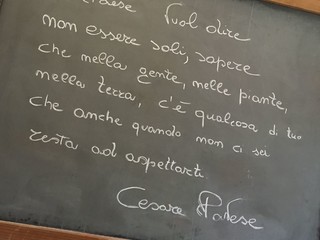 paese vuol dire
non essere soli, sapere
che nella gente, nelle piante,
nella terra, c'è qualcosa di tuo
che anche quando non ci sei
resta ad aspettarti
Cesare Pavese